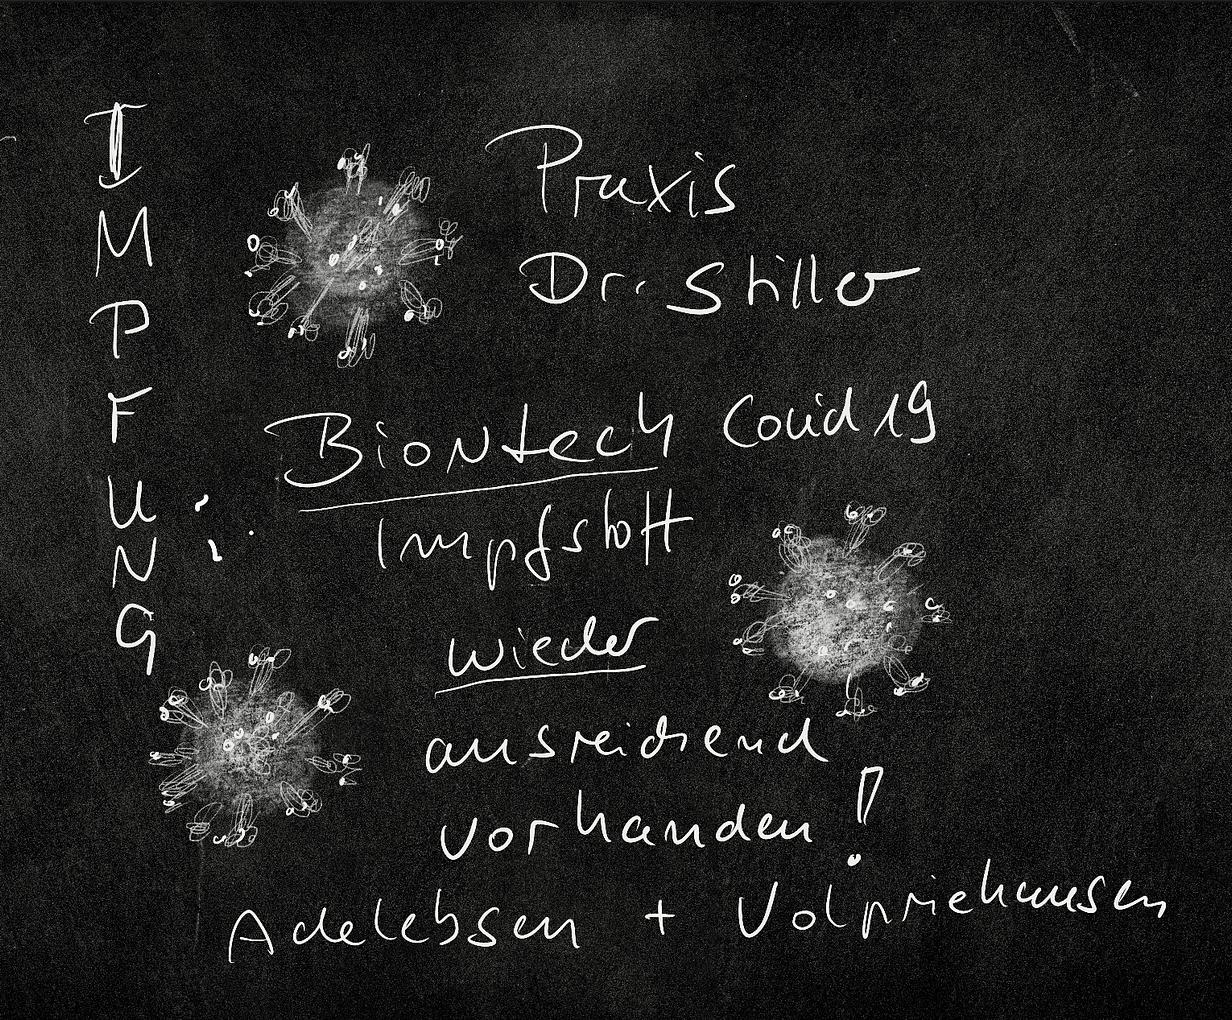 IMPFUNG:
Praxis
Dr. Stiller
Biontech Covid 19
Impfstoff
wieder
ausreichend
vorhanden!
Adelebsen + Volpriehausen